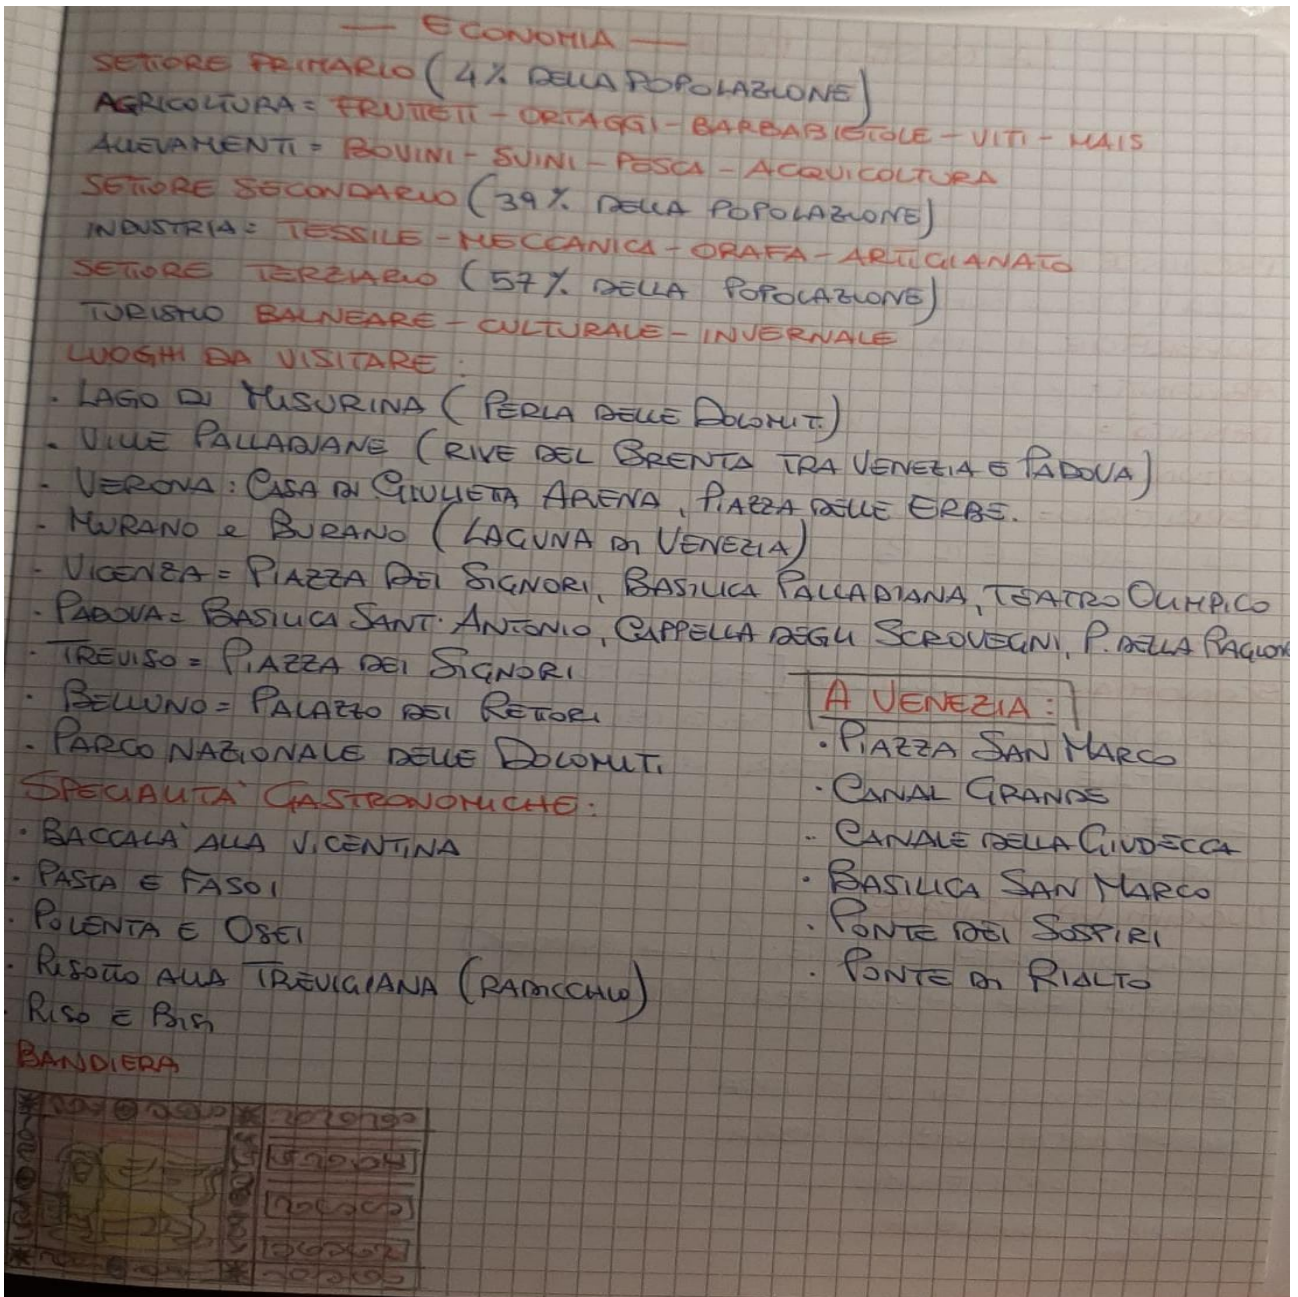 — ECONOMIA —
SETTORE PRIMARIO (4% DELLA POPOLAZIONE)
AGRICOLTURA = FRUTTETI - ORTAGGI - BARBABIETOLE - VITI - MAIS
ALLEVAMENTI = BOVINI - SUINI - PESCA - ACQUICOLTURA
SETTORE SECONDARIO (39% DELLA POPOLAZIONE)
INDUSTRIA = TESSILE - MECCANICA - ORAFA - ARTIGIANATO
SETTORE TERZIARIO (57% DELLA POPOLAZIONE)
TURISMO BALNEARE - CULTURALE - INVERNALE
LUOGHI DA VISITARE :
. LAGO DI MISURINA (PERLA DELLE DOLOMITI)
. VILLE PALLADIANE (RIVE DEL BRENTA TRA VENEZIA E PADOVA)
. VERONA : CASA DI GIULIETTA ARENA, PIAZZA DELLE ERBE.
. MURANO e BURANO (LAGUNA DI VENEZIA)
. VICENZA = PIAZZA DEI SIGNORI, BASILICA PALLADIANA, TEATRO OLIMPICO
. PADOVA = BASILICA SANT. ANTONIO, CAPPELLA DEGLI SCROVEGNI, P. DELLA RAGIONE
. TREVISO = PIAZZA DEI SIGNORI
. BELLUNO = PALAZZO DEI RETTORI
. PARCO NAZIONALE DELLE DOLOMITI
SPECIALITÀ GASTRONOMICHE :
. BACCALÀ ALLA VICENTINA
. PASTA E FASOI
. POLENTA E OSEI
. RISOTTO ALLA TREVIGIANA (RADICCHIO)
. RISO E BISI
BANDIERA
A VENEZIA :
. PIAZZA SAN MARCO
. CANAL GRANDE
. CANALE DELLA GIUDECCA
. BASILICA SAN MARCO
. PONTE DEI SOSPIRI
. PONTE DI RIALTO